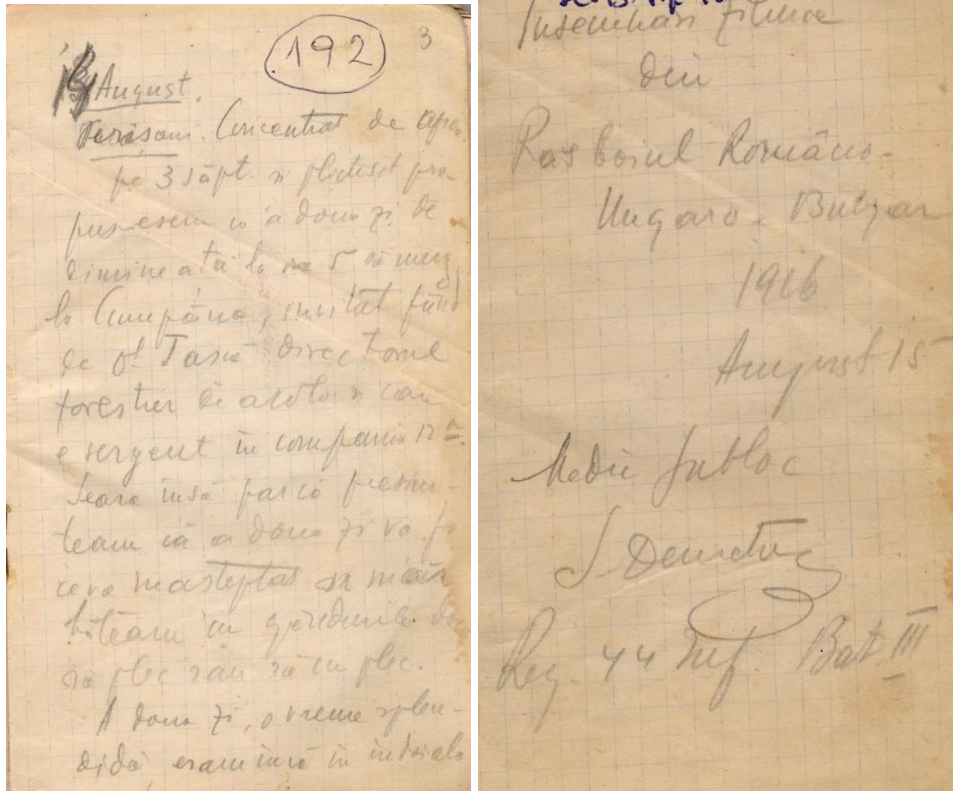 192
3
August.
Concentrat de
pe 3 săpt. si plictisit pro-
pusesem ca a doua zi de
dimineată la 5 să merg
la Câmpâna, invitat fiind
de dl Tască directorul
forestier de acolo si care
e sergent in compania 12 a.
Seara însă parcă presim-
team că a doua zi va fi
ceva neasteptat
băteam in gândurile
să plec sau să nu plec.
A doua zi, o vreme splen-
didă, eram încă in indoiala
Insemnări Zilnice
din
Rasboiul Româno-
Ungaro-Bulgar
1916
August 15
Medic Subloc
Reg. 44 Inf. Bat. III